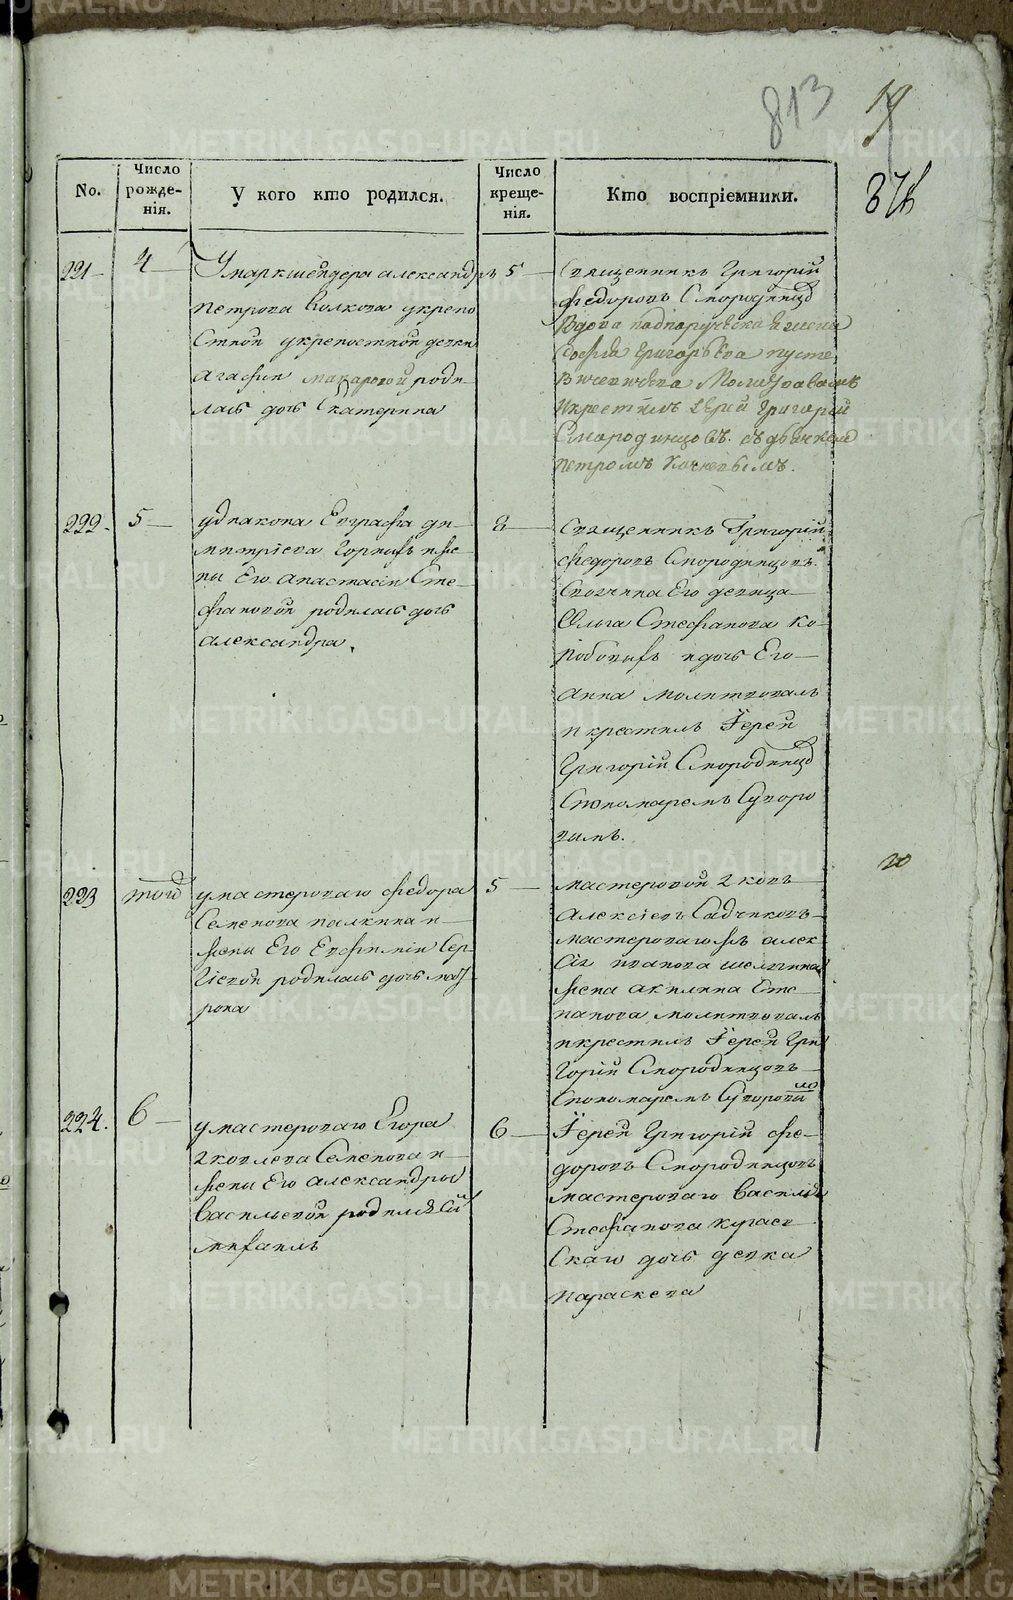 813
19
876
No.
Число рожденія.
У кого кто родился.
Число крещенія.
Кто воспріемники.
221
4
У маркшейдера александра
петрова волкова у крепо
стной у крепостной девки
агафии макаровой роди
лась дочь Екатерина
5
Священникъ Григорій
федоровъ Смородинцо
Вдова
софья григорьева
Молитвовалъ
и крестилъ іерей григорей
Смародинцовъ. съ дьячкомъ
петромъ
222.
5
у диакона Евграфа ди
митріева Горныхъ и же
ны Его анастасіи Сте
фановой родилась дочь
александра.
8
Священникъ Григорій
федоровъ Смородинцовъ.
Его девица
Ольга Стефанова Ко
робовыхъ и дочь Его
анна молитвовалъ
и крестилъ Іерей
Григорій Смородинцо
Спономаремъ Суворо
вымъ.
223
той
у мастероваго федора
Семенова палкина и
жены Его Евфиміи Сер
гіевой родилась дочь мат
рона
5
мастеровой Яковъ
алексіевъ Садчиковъ
мастероваго жъ алек
сія иванова
жена акилина Сте
панова, молитвовалъ
и крестилъ Іерей Гри
горій Смородинцовъ
Спономаремъ Суворовымъ
20
224.
6
у мастероваго Егора
Яковлева Семенова и
жены Его александры
васильевой родился сынъ
михаилъ
6
Іерей Григорій фе
доровъ Смородинцовъ
мастероваго василья
Стефанова
скаго дочь девка
параскева
METRIKI.GASO-URAL.RU